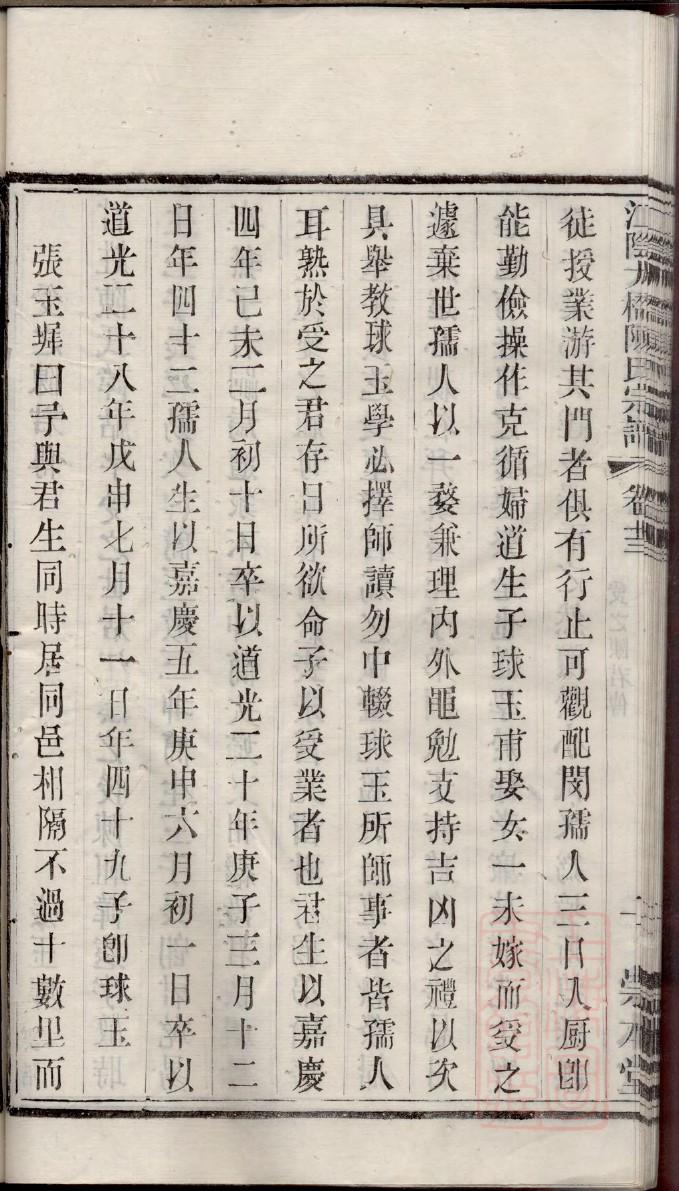 江陰大橋陳氏宗譜 卷十三 崇本堂
徒授業游其門者俱有行止可觀配閔孺人三日入厨卽
能勤儉操作克循婦道生子球玉甫娶女一未嫁而受之
遽棄世孺人以一嫠兼理內外黽勉支持吉凶之禮以次
具舉教球玉學必擇師讀勿中輟球玉所師事者皆孺人
耳熟於受之君存日所欲命子以受業者也君生以嘉慶
四年己未二月初十日卒以道光二十年庚子三月十二
日年四十二孺人生以嘉慶五年庚申六月初一日卒以
道光二十八年戊申七月十一日年四十九子卽球玉
張玉墀曰予與君生同時居同邑相隔不過十數里而